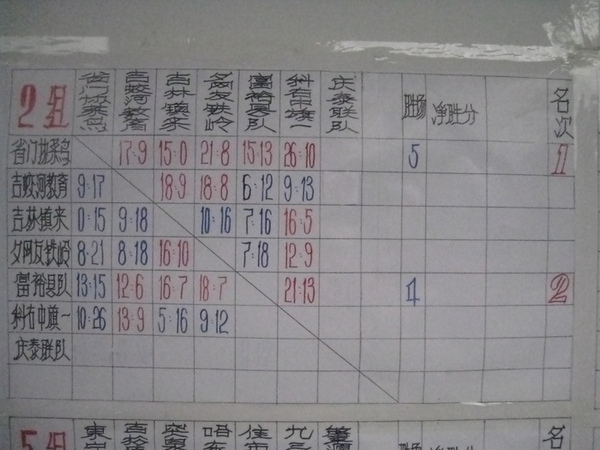 2组 吉蛟河教育 吉林镇来 夕网友铁岭 富裕县队 科右中旗一 庆泰联队 胜场 净胜分 名次
17:9 15:0 21:8 15:13 26:10 5 1
吉蛟河教育 9:17 18:9 18:8 6:12 9:13
吉林镇来 0:15 9:18 10:16 7:16 16:5
夕网友铁岭 8:21 8:18 16:10 7:18 12:9
富裕县队 13:15 12:6 16:7 18:7 21:13 4 2
科右中旗一 10:26 13:9 5:16 9:12
庆泰联队
5组 净胜分 名